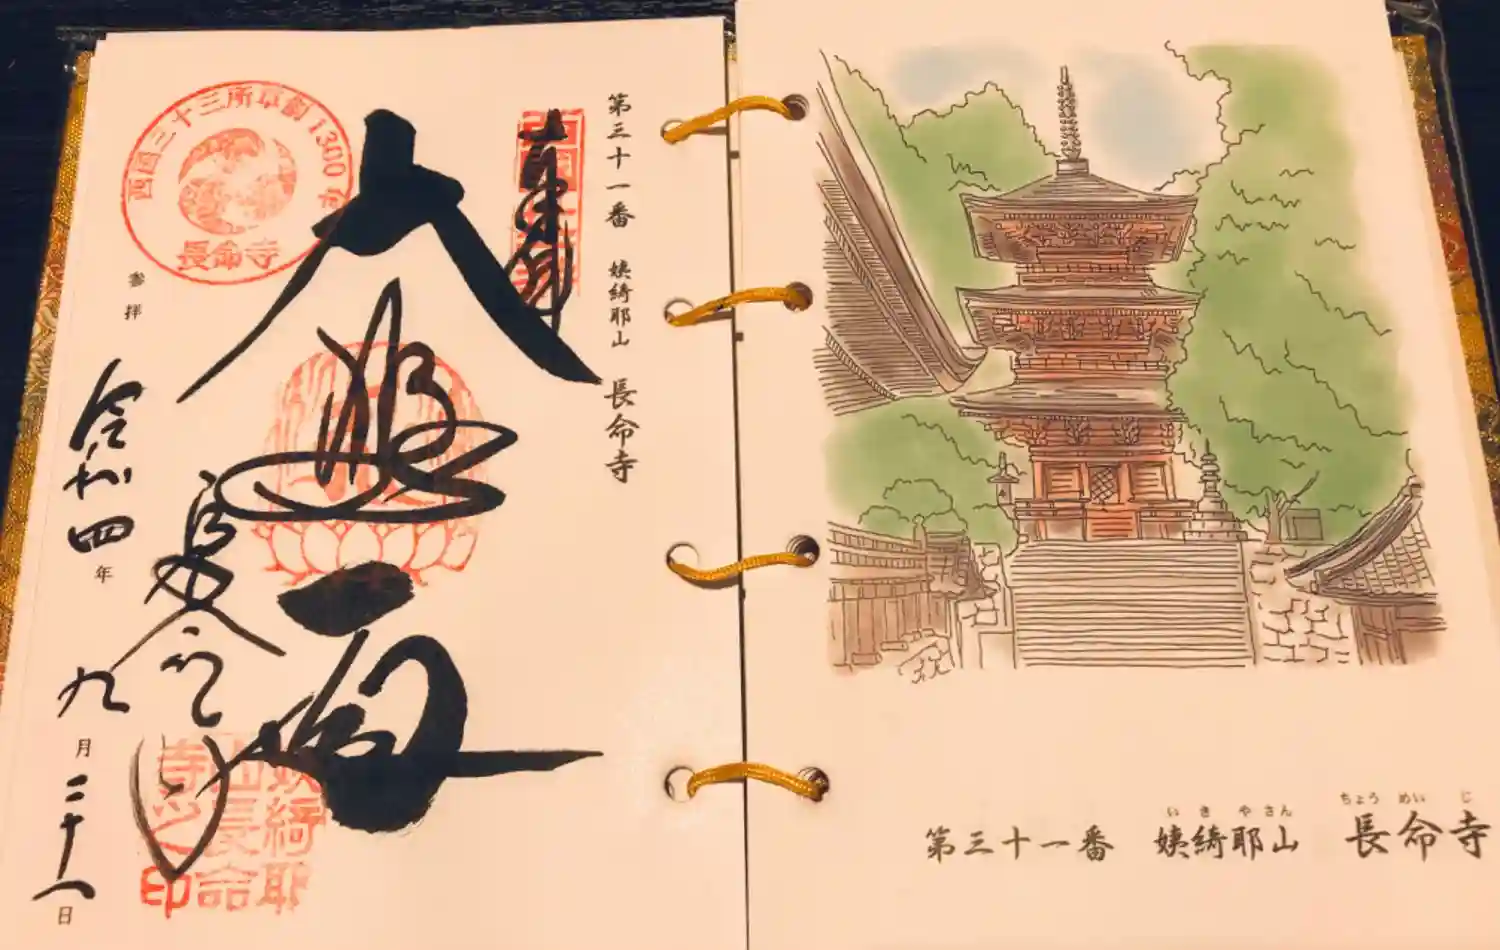 第三十一番 姨綺耶山 長命寺
奉拝
大悲
西国三十三所草創1300年
長命寺
長命寺
姨綺耶
山長命
寺之印
参拝
令和四年九月二十八日
いきやさん ちょうめいじ
第三十一番 姨綺耶山 長命寺